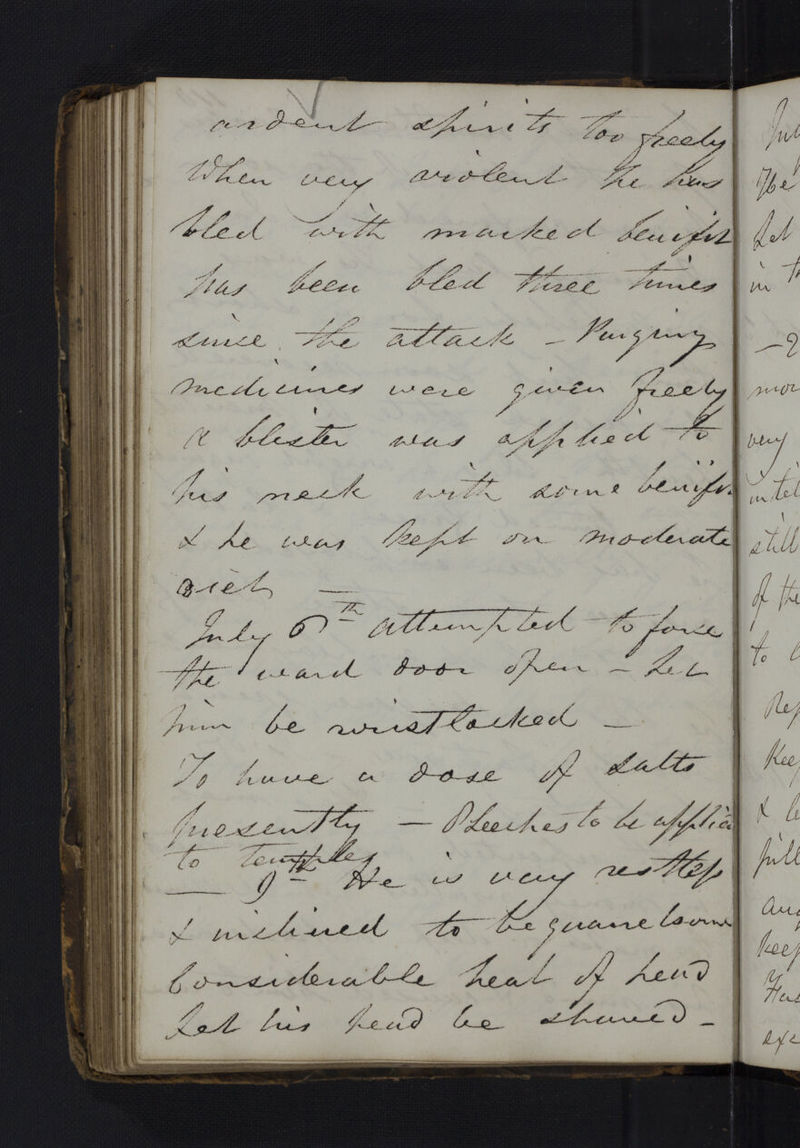 ardent spirits too freely
When very violent he has
bled with marked benifit
has been bled three times
since the attack – Purging
medicines were given freely
A blister was applied to
his neck with some benifit
& he was kept on moderate
diet –
July 6th attempted to force
the ward door open – Let
him be wristlocked –
To have a dose of salts
presently – 8 Leeches to be applied
to temples
— 9th He is very restless
& inclined to be quarrelsome
Considerable heat of head
Let his head be shaved –
He
Let
in
very
still
of the
to
&